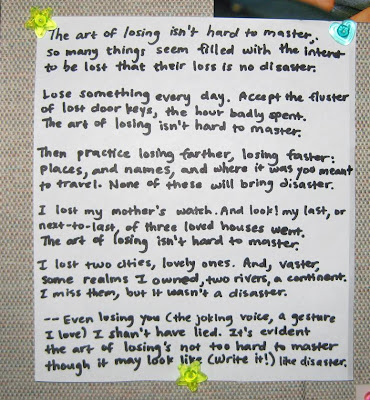 The art of losing isn't hard to master;
so many things seem filled with the intent
to be lost that their loss is no disaster.
Lose something every day. Accept the fluster
of lost door keys, the hour badly spent.
The art of losing isn't hard to master.
Then practice losing farther, losing faster:
places, and names, and where it was you meant
to travel. None of these will bring disaster.
I lost my mother's watch. And look! my last, or
next-to-last, of three loved houses went.
The art of losing isn't hard to master.
I lost two cities, lovely ones. And, vaster,
some realms I owned, two rivers, a continent.
I miss them, but it wasn't a disaster.
-- Even losing you (the joking voice, a gesture
I love) I shan't have lied. It's evident
the art of losing's not too hard to master
though it may look like (Write it!) like disaster.